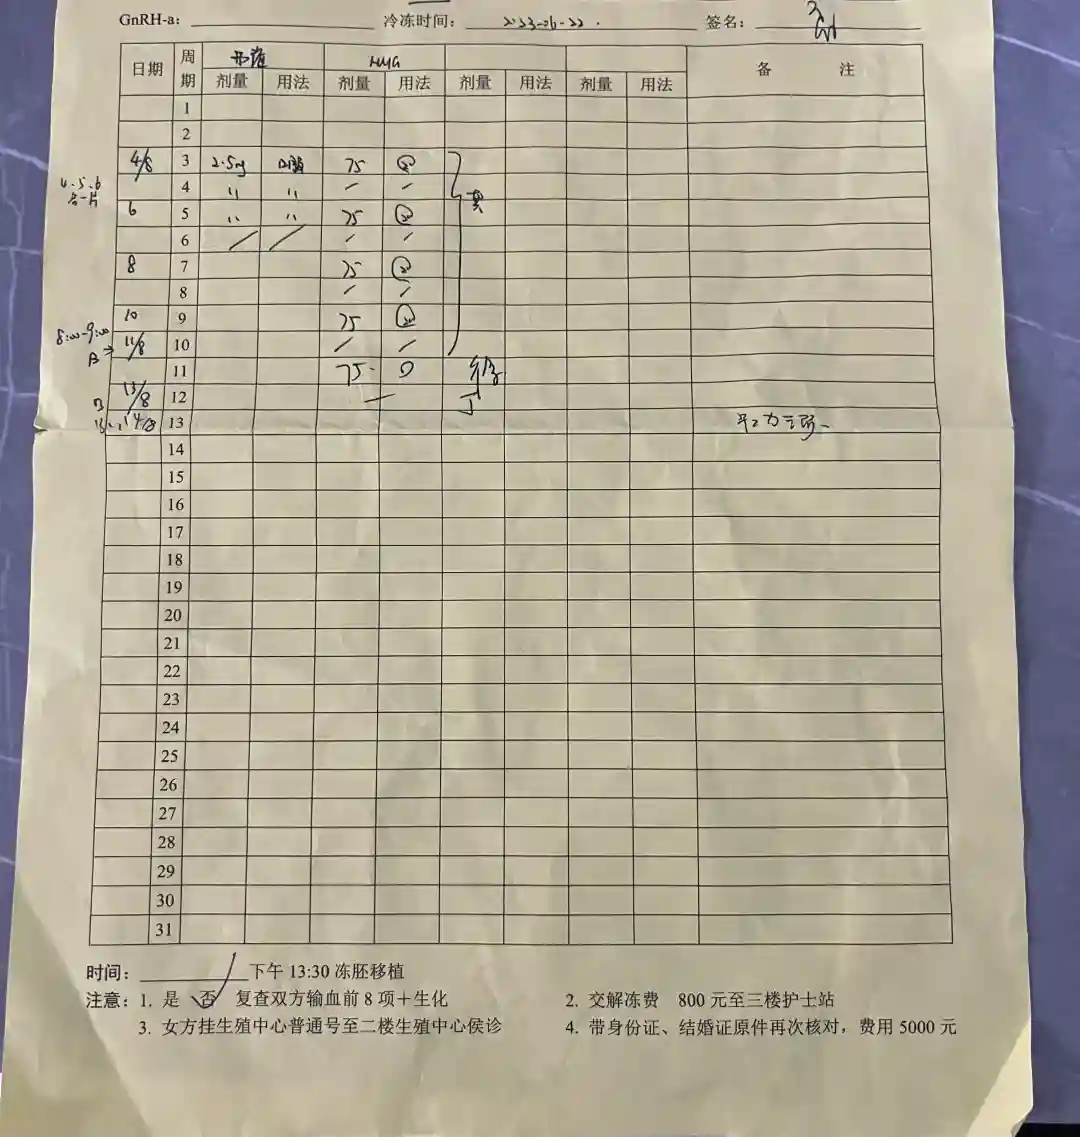 GnRH-a: 冷冻时间: 2023-06-22. 签名:
日期 周期 HMG 备 注
剂量 用法 剂量 用法 剂量 用法 剂量 用法
1
2
4/8 3 2.5mg 口服 75
4.5.6 4 〃 〃 / /
各一片
6 5 〃 〃 75
6 / / / /
8 7 75
8 / /
10 9 75
8:00-9:00
B→ 11/8 10 / /
11 75
13/8 12 —
B 14/8 13
14
15
16
17
18
19
20
21
22
23
24
25
26
27
28
29
30
31
时间: 下午 13:30 冻胚移植
注意: 1. 是 否 复查双方输血前 8 项+生化 2. 交解冻费 800 元至三楼护士站
3. 女方挂生殖中心普通号至二楼生殖中心侯诊 4. 带身份证、结婚证原件再次核对，费用 5000 元